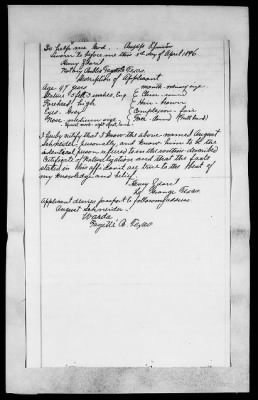 So help me God. August Schneider
Sworn to before me this 1st day of April 1896.
Henry
Notary Public Fayette Co Texas
Description of Applicant
Age 47 years
Stature 5 feet 5 inches, Eng
Forehead high
Eyes Gray
Nose medium size
mouth - medium size
Chin - round
Hair - brown
Complexion - fair
Face Round (Full beard)
I hereby certify that I know the above named August
Schneider personally, and know him to be the
identical person referred to in the within described
Certificate of Naturalization and that the facts
stated in his affidavit are true to the best of
my knowledge and belief.
Henry
La Grange Texas.
Applicant desires passport to following address.
August Schneider.
Warda
Fayette Co. Texas